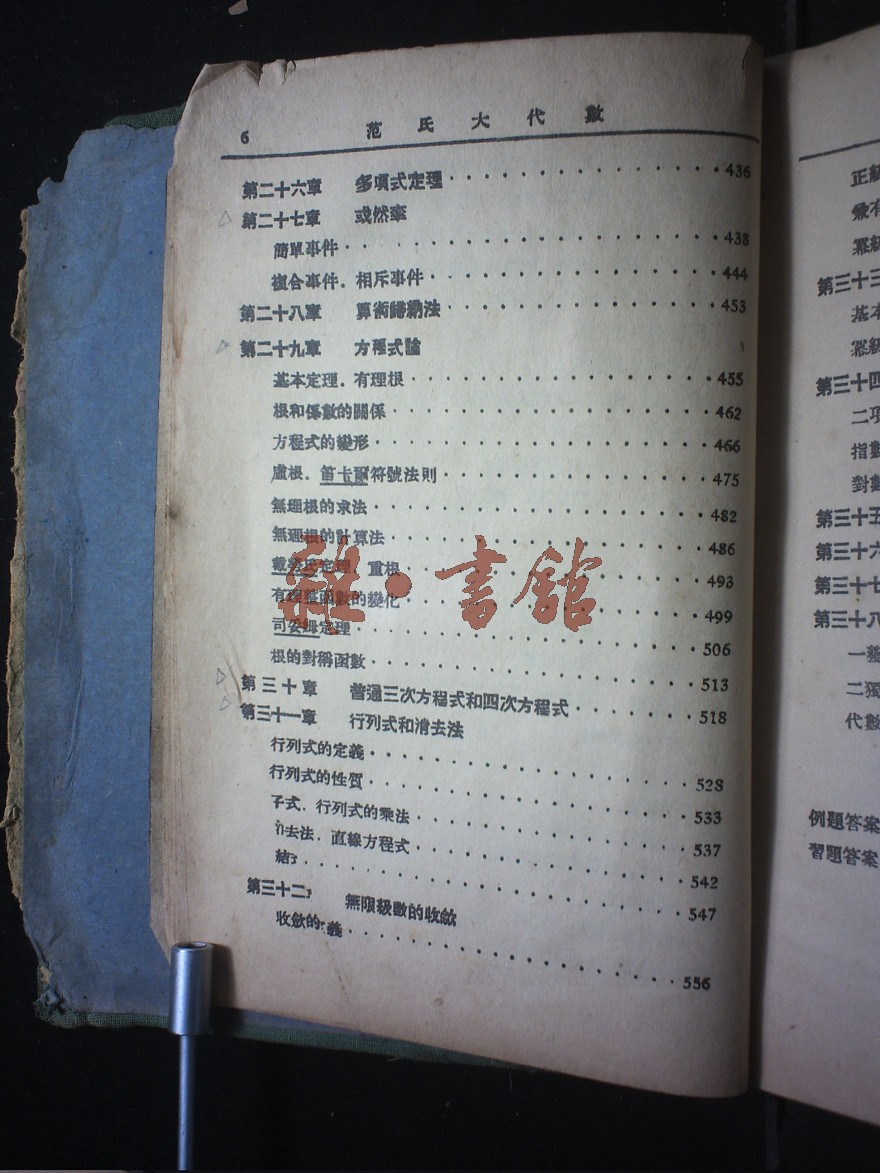 6 范氏大代數
第二十六章 多項式定理 436
第二十七章 或然率
簡單事件 438
複合事件．相斥事件 444
第二十八章 算術歸納法 453
第二十九章 方程式論
基本定理．有理根 455
根和係數的關係 462
方程式的變形 466
虛根．笛卡爾符號法則 475
無理根的求法 482
無理根的計算法 486
戴勞氏定理．重根 493
有理整函數的變化 499
司姆定理 506
根的對稱函數 513
第三十章 普通三次方程式和四次方程式 518
第三十一章 行列式和消去法
行列式的定義 528
行列式的性質 533
子式．行列式的乘法 537
去法．直線方程式 542
結 547
第三十二 無限級數的收斂
收斂的義 556
正級
兼有
冪級
第三十三
基本
冪級
第三十四
二項
指數
對數
第三十五
第三十六
第三十七
第三十八
一
二獨
代數
例題答案
習題答案
雜·書館